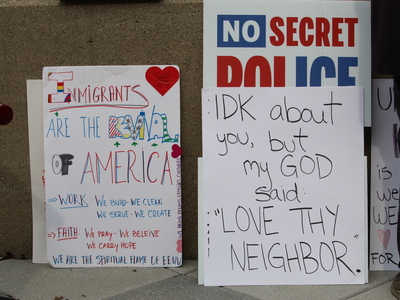 IMMIGRANTS
ARE THE
OF AMERICA
WORK WE BUILD- WE CLEAN
WE SERVE- WE CREATE
FAITH: WE PRAY- WE BELEIVE
WE CARRY HOPE
WE ARE THE SPIRITUAL FLAME OF EEUU
NO SECRET
POLICE
IDK about
you, but
my GOD
said:
"LOVE THY
NEIGHBOR".
is
WE
FOR